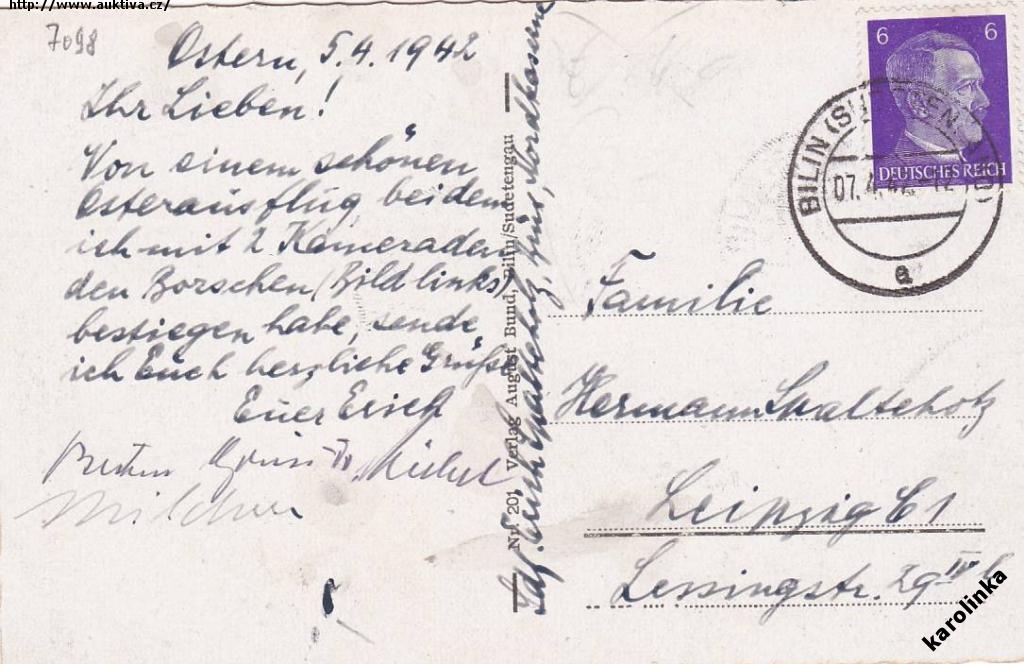 http://www.auktiva.cz/
7098
Ostern, 5.4.1942
Ihr Lieben!
Von einem schönen
Osterausflug, bei dem
ich mit 2 Kameraden
den Borschen (Bild links)
bestiegen habe, sende
ich Euch herzliche Grüße
Euer Erich
Nr. 201 Verlag August Bund, Bilin/Sudetengau
6 6
DEUTSCHES REICH
BILIN (SUDETEN
07.4.42
a
Familie
Hermann Spalteholz
Leipzig C1
Lessingstr. 29 IV
karolinka